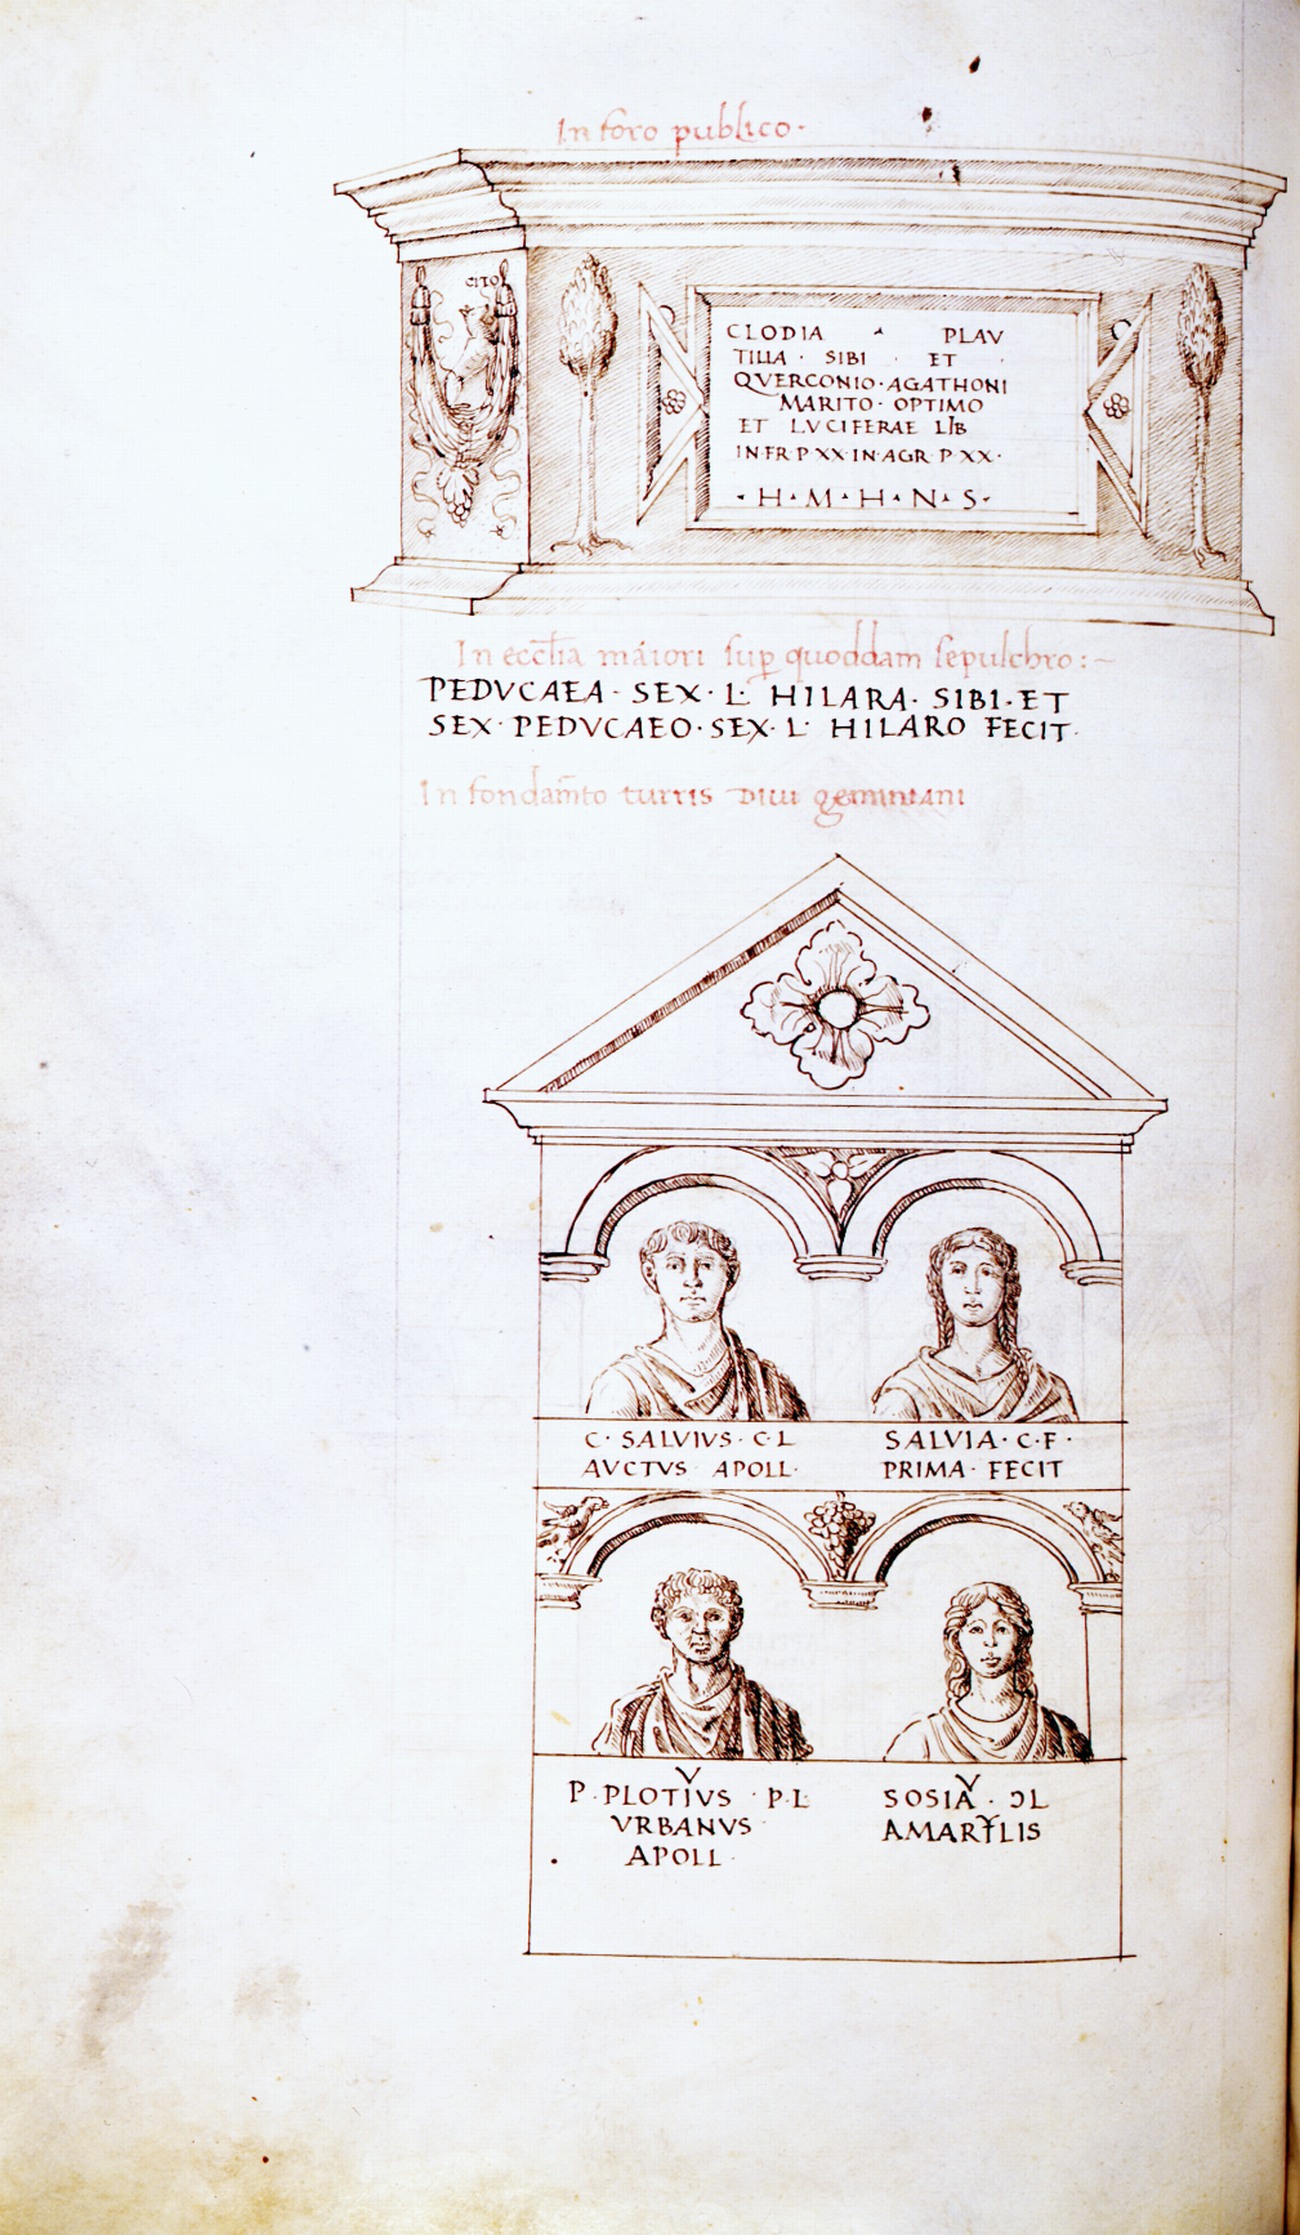 In foro publico·
CITO
CLODIA PLAV
TILLA · SIBI · ET ·
QVERCONIO · AGATHONI
MARITO · OPTIMO
ET LVCIFERAE LIB
IN·FR·P XX·IN·AGR P XX·
· H · M · H · N · S ·
In eccl̅ia maiori sup̱ quoddam sepulchro :~
PEDVCAEA · SEX · L · HILARA · SIBI · ET
SEX · PEDVCAEO · SEX · L · HILARO FECIT ·
In fondam̅to turris Diui geminiani
C · SALVIVS · C · L
AVCTVS APOLL ·
SALVIA · C · F ·
PRIMA · FECIT
V
P · PLOTIVS · P · L
VRBANVS
APOLL ·
V
SOSIA · ƆL
AMARYLIS